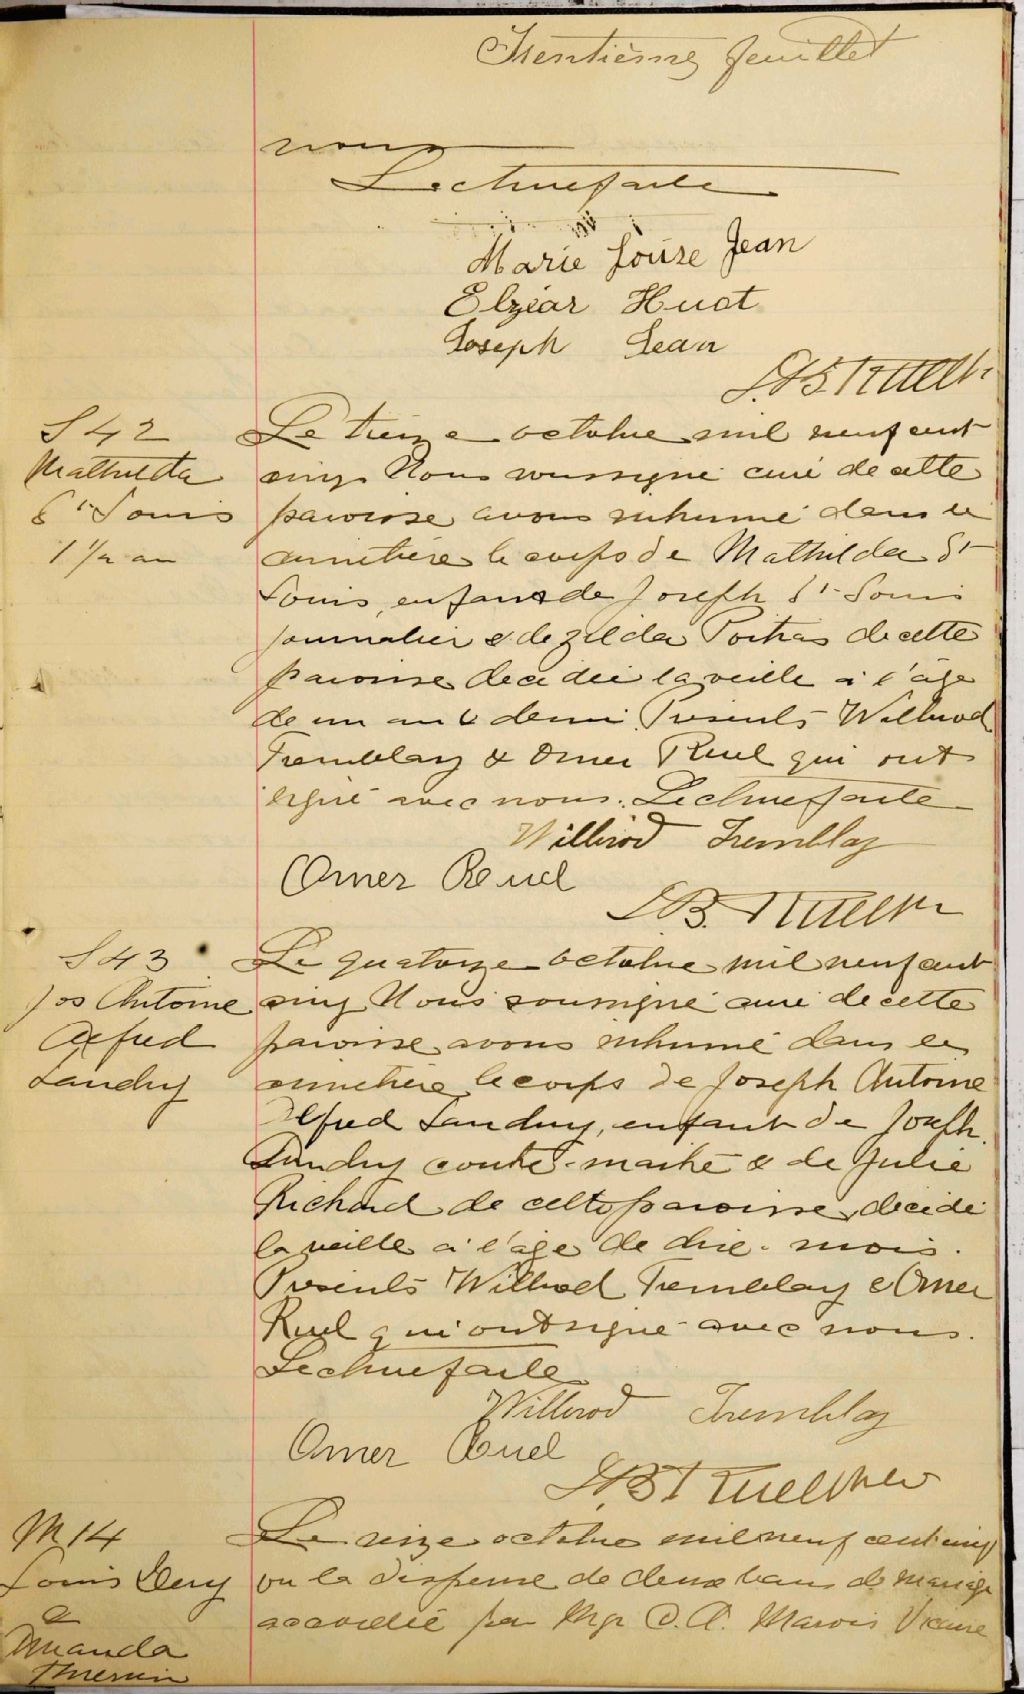 Trentième feuillet
nous
Lecture faite
Marie Louise Jean
Elzéar Huot
Joseph Jean
J.B. Ruel
S 42
Mathilda
St Louis
1 1/2 an
Le treize octobre mil neuf cent
cinq Nous soussigné curé de cette
paroisse avons inhumé dans le
cimetière le corps de Mathilda St
Louis, enfant de Joseph St Louis
journalier & de Zelda Poitras de cette
paroisse decedée la veille à l'âge
de un an & demi. Présents Wilbrod
Tremblay & Omer Ruel qui ont
signé avec nous. Lecture faite
Wilbrod Tremblay
Omer Ruel
J.B. Ruel
S 43
Jos Antoine
Alfred
Landry
Le quatorze octobre mil neuf cent
cinq Nous soussigné curé de cette
paroisse avons inhumé dans le
cimetière le corps de Joseph Antoine
Alfred Landry, enfant de Joseph
Landry contre-maitre & de Julie
Richard de cette paroisse, decedé
la veille à l'âge de dix mois.
Présents Wilbrod Tremblay & Omer
Ruel qui ont signé avec nous.
Lecture faite
Wilbrod Tremblay
Omer Ruel
J.B. Ruel
M 14
Louis Dery
&
Amanda
Le seize octobre mil neuf cent cinq
vu la dispense de deux bans de mariage
accordée par Mgr C.A. Marois Vicaire